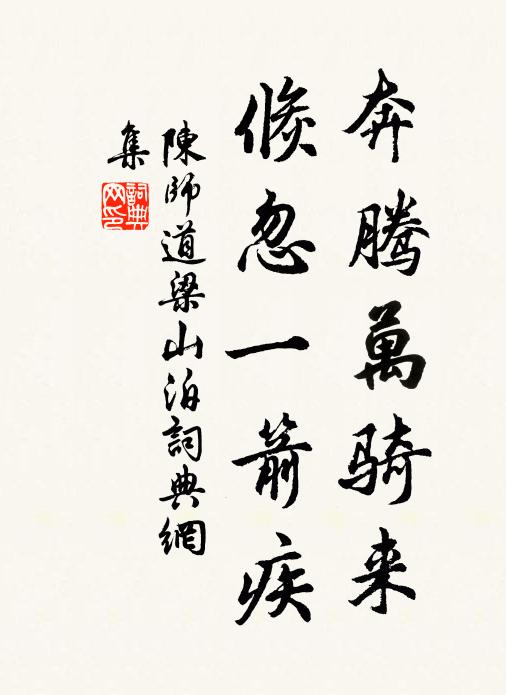 奔騰萬騎来
倏忽一箭疾
陳師道梁山泊詞典網
集
詞典網印